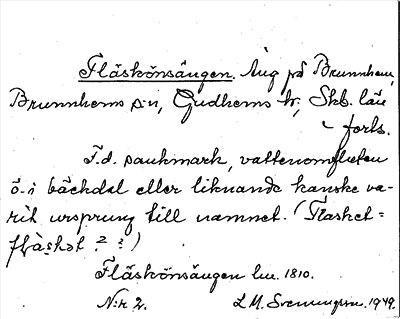 Fläskönsängen. Äng på Brunnhem,
Brunnhems s:n, Gudhems h., Skb. län
forts.
F.d. sankmark, vattenomfluten
ö i bäckdal eller liknande kanske va-
rit ursprung till namnet. (Flasket =
fläsket ? ?)
Fläskönsängen lm. 1810.
N:r 2. L. M. Svenungson. 1949.